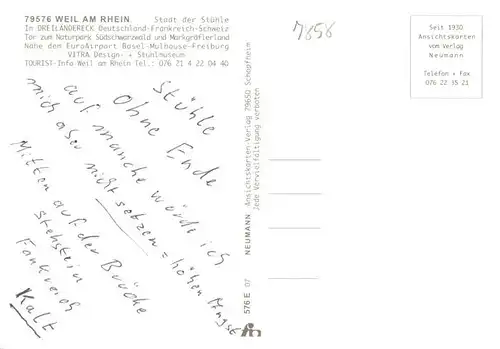 79576 WEIL AM RHEIN   Stadt der Stühle
In DREILÄNDERECK Deutschland-Frankreich-Schweiz
Tor zum Naturpark Südschwarzwald und Markgräflerland
Nahe dem EuroAirport Basel-Mulhouse-Freiburg
VITRA Design- + Stuhlmuseum
TOURIST-Info Weil am Rhein Tel.: 076 21 4 22 04 40
Stühle
Ohne Ende
auf manche würde ich
mich aber nicht setzen = höhen Angst
Mitten auf der Brücke
stehstein
Frankreich
Kalt
576 E 07 NEUMANN Ansichtskarten-Verlag 79650 Schopfheim
Jede Vervielfältigung verboten
7858
Seit 1930
Ansichtskarten
vom Verlag
Neumann
Telefon + Fax
076 22 35 21